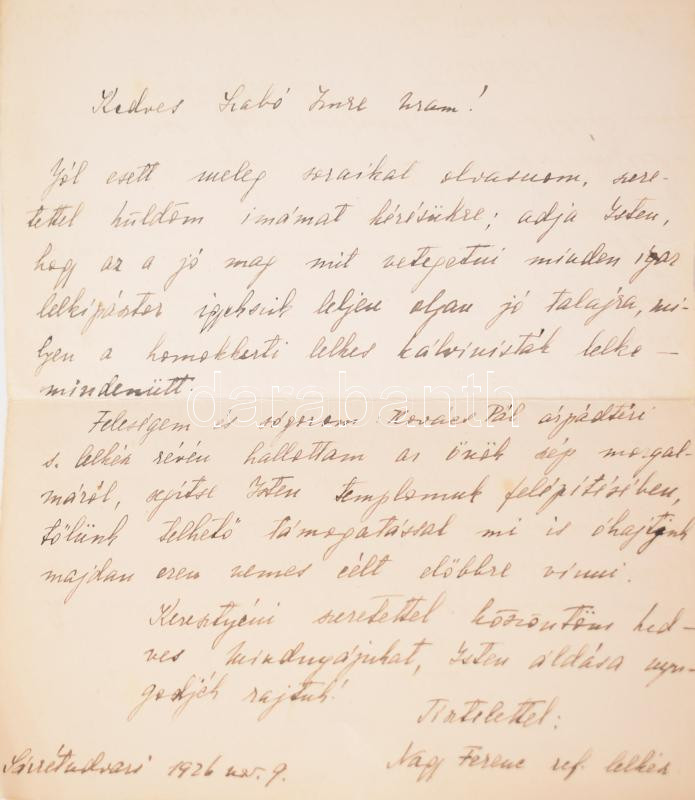 Kedves Szabó Imre Uram!
Jól esett meleg soraikat olvasnom, szere-
tettel küldöm imámat kérésükre; adja Isten,
hogy az a jó mag mit vetegetni minden igaz
lelkipásztor igyekszik leljen olyan jó talajra, mi-
lyen a homokkerti lelkes kálvinisták lelke –
mindenütt.
Feleségem és sógorom Kovacs Pál árpádtéri
s. lelkész révén hallottam az Önök szép mozgal-
máról, segítse Isten templomuk felépítésében,
tőlünk telhető támogatással mi is óhajtjuk
majdan ezen nemes célt előbbre vinni.
Keresztyéni szeretettel köszöntöm ked-
ves mindnyájukat, Isten áldása nyu-
godjék rajtuk!
Tisztelettel:
Sárrétudvari 1926 nov. 9. Nagy Ferenc ref. lelkész
darabanth